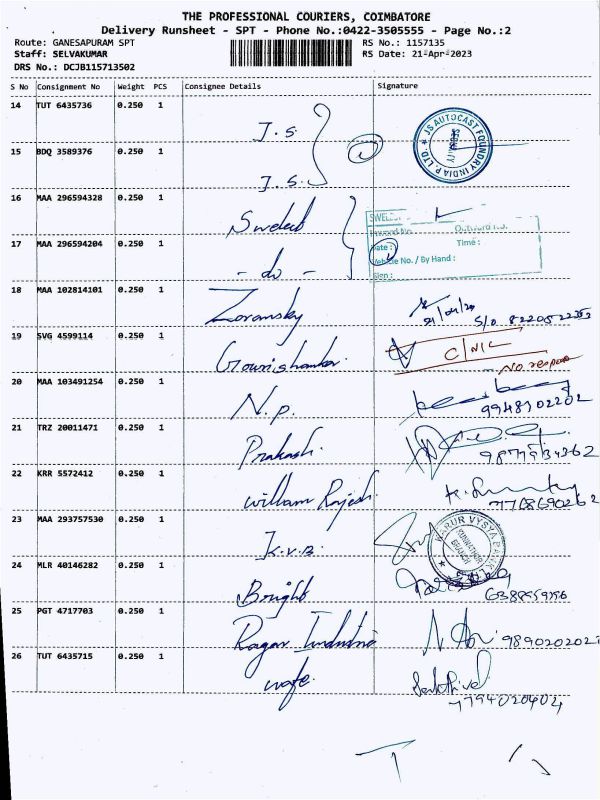 THE PROFESSIONAL COURIERS, COIMBATORE
Delivery Runsheet - SPT - Phone No.:0422-3505555 - Page No.:2
Route: GANESAPURAM SPT RS No.: 1157135
Staff: SELVAKUMAR RS Date: 21-Apr-2023
DRS No.: DCJB115713502
S No Consignment No Weight PCS Consignee Details Signature
14 TUT 6435736 0.250 1 J.S. JS AUTOCAST FOUNDRY INDIA P. LTD. SECURITY
15 BDQ 3589376 0.250 1 J.S.
16 MAA 296594328 0.250 1 Swelect
17 MAA 296594204 0.250 1 - do - Time :
Vehicle No. / By Hand :
Sign :
18 MAA 102814101 0.250 1 Zoransky 21/04/20
19 SVG 4599114 0.250 1 Gowrishankar. C/NIC
No respon
20 MAA 103491254 0.250 1 N.P. 9948302202
21 TRZ 20011471 0.250 1 Prakash.
22 KRR 5572412 0.250 1 William Rajesh.
23 MAA 293757530 0.250 1 K.V.B. KARUR VYSYA BANK BRANCH
24 MLR 40146282 0.250 1 Bright
25 PGT 4717703 0.250 1 Ragav 9890202021
26 TUT 6435715 0.250 1 Sakthivel
7794020402